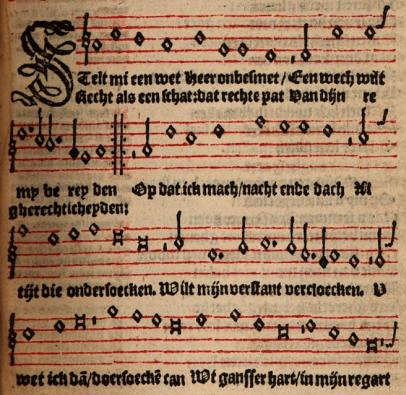 STelt mi een wet Heer onbesmet/ Een wech wilt
Recht als een schat: dat rechte pat Van dijn re
my be rey den Op dat ick mach/ nacht ende dach Al
gherechticheyden:
tijt die ondersoecken. Wilt mijn verstant vercloecken. V
wet ick dā/ doersoeckē can Wt gansser hart/ in mijn regart